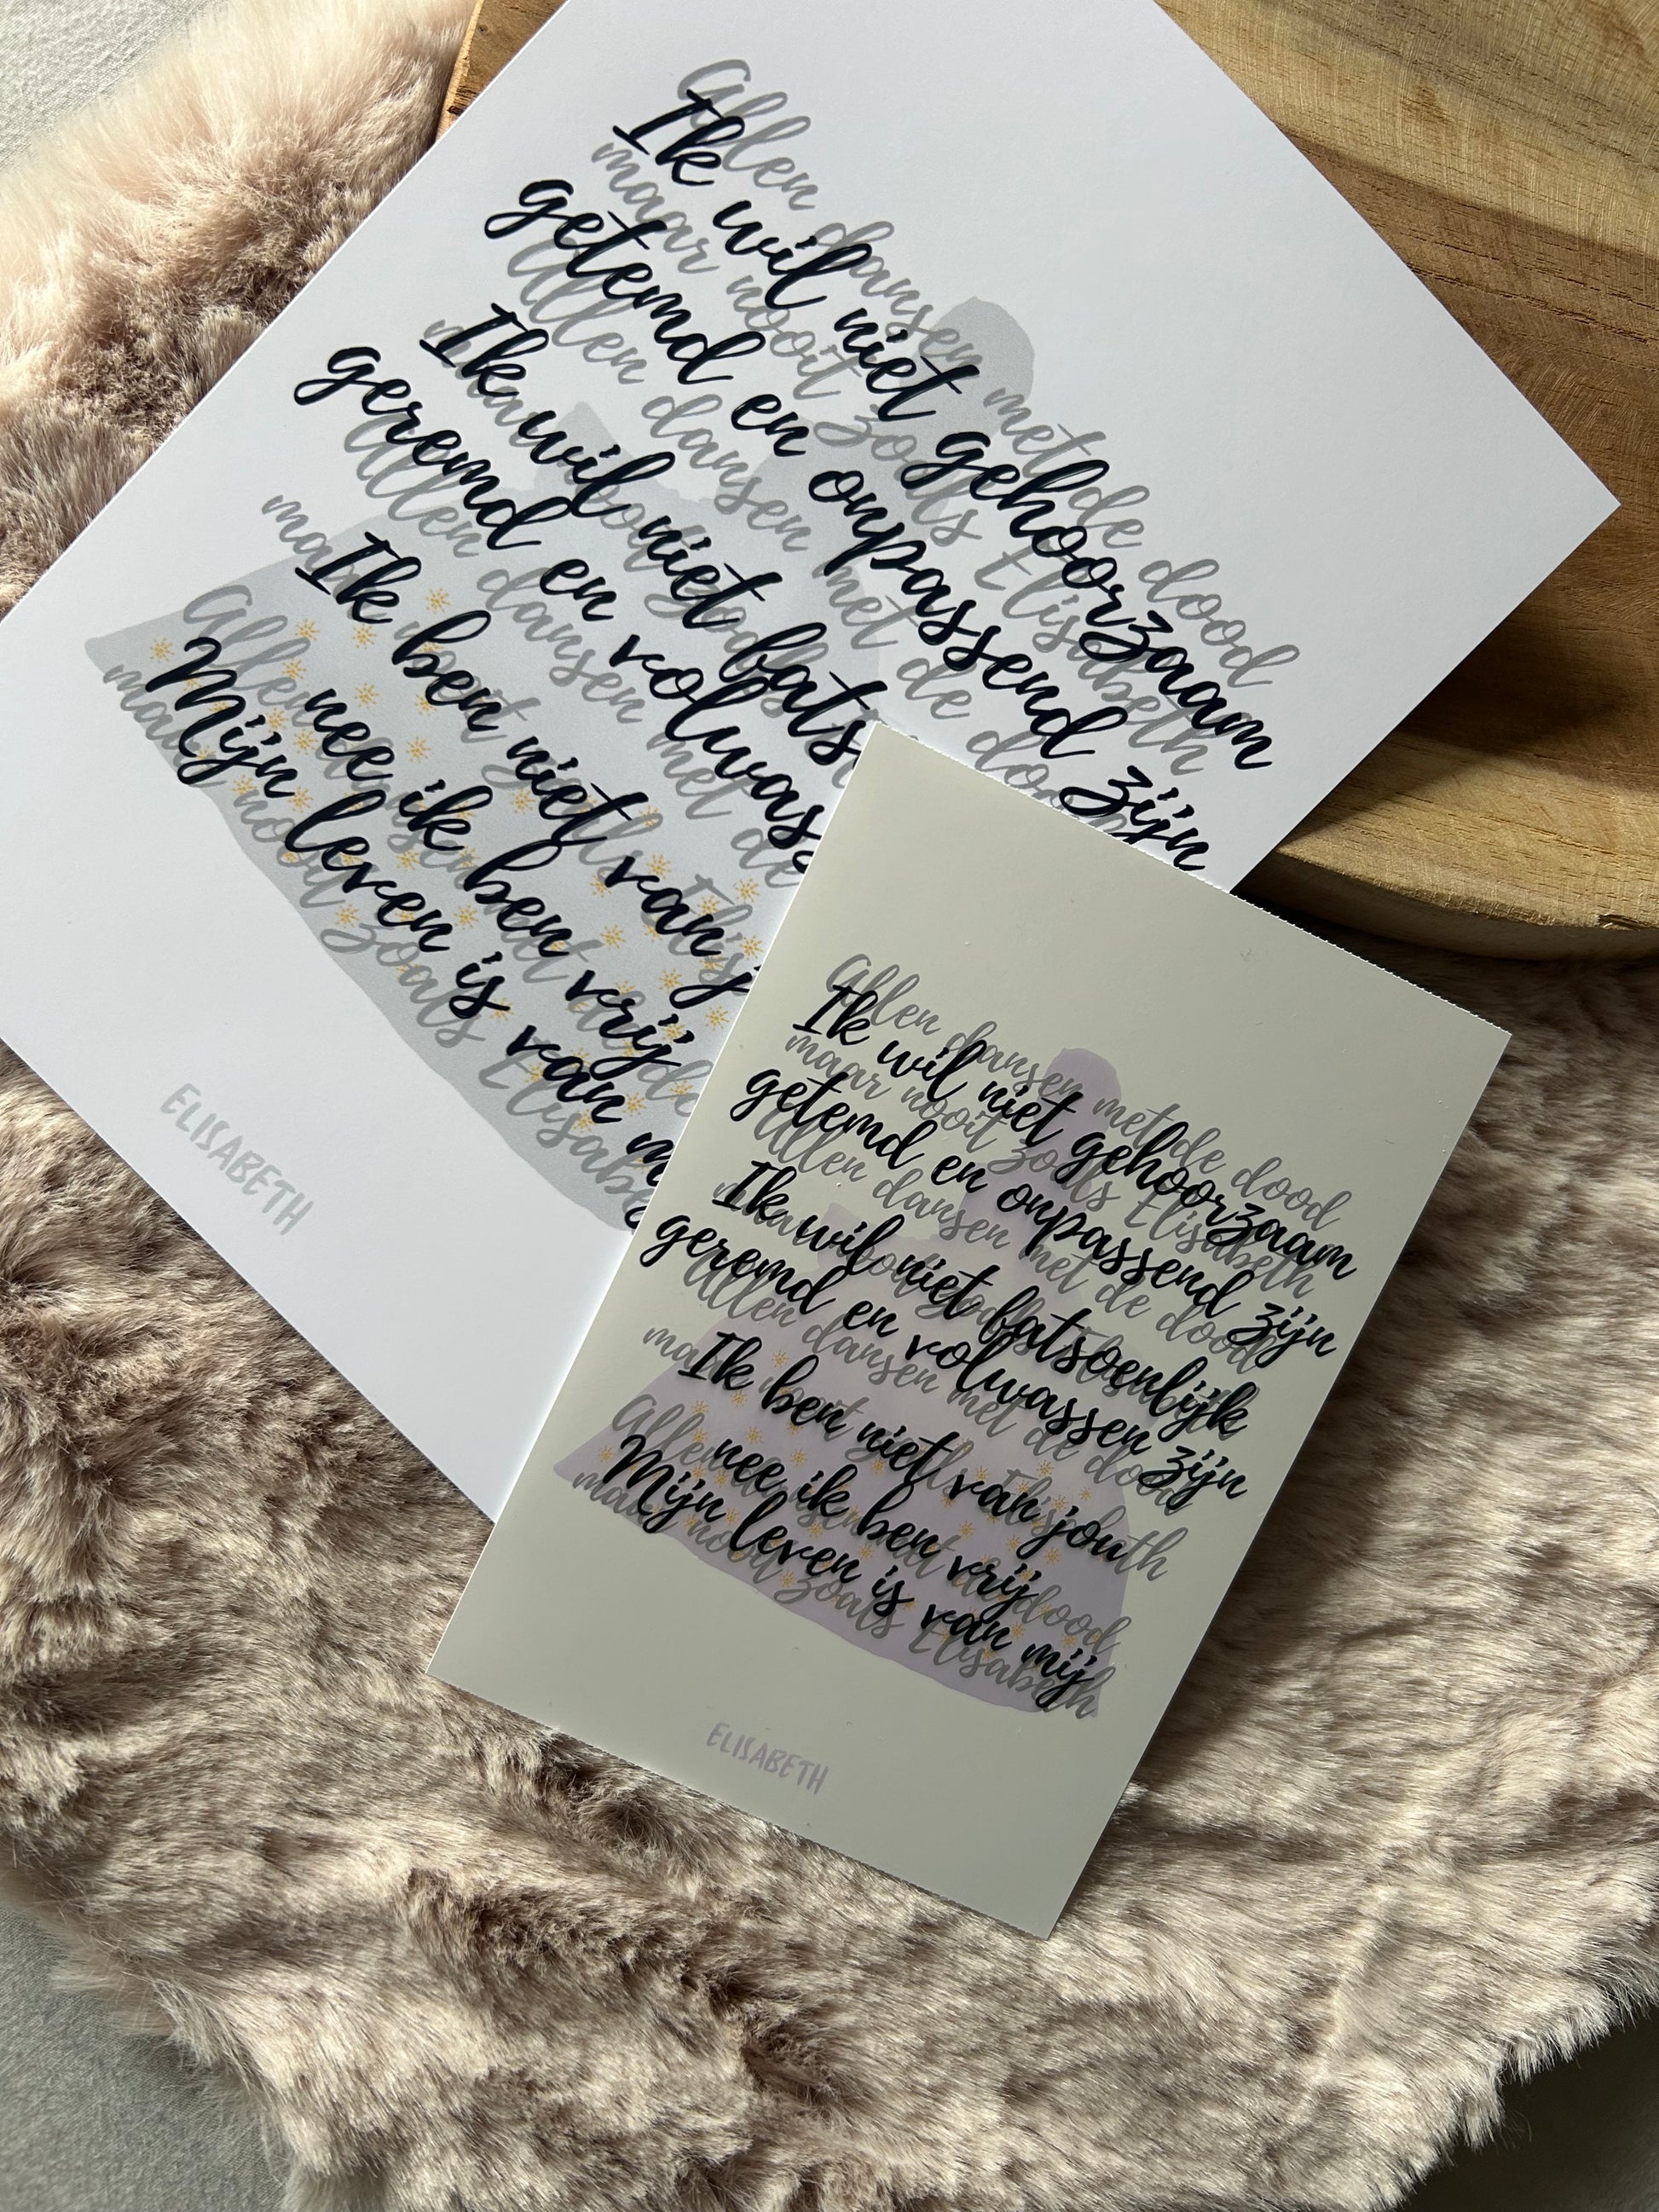 Allen dansen met de dood
Ik wil niet gehoorzaam
maar nooit zoals Elisabeth
getemd en onpassend zijn
Allen dansen met de doo
Ik wil niet fats
maar nooit zoals
geremd en volwass
Allen dansen met de
maar nooit zoals Elis
Ik ben niet van j
Allen dansen met de
nee ik ben vrij
Mijn leven is van m
maar nooit zoals Elisabe
ELISABETH
Allen dansen met de dood
Ik wil niet gehoorzaam
maar nooit zoals Elisabeth
getemd en onpassend zijn
Allen dansen met de dood
Ik wil niet fatsoenlijk
maar nooit zoals Elisabeth
geremd en volwassen zijn
Allen dansen met de dood
maar nooit zoals Elisabeth
Ik ben niet van jou
Allen dansen met de dood
nee ik ben vrij
Mijn leven is van mij
maar nooit zoals Elisabeth
ELISABETH